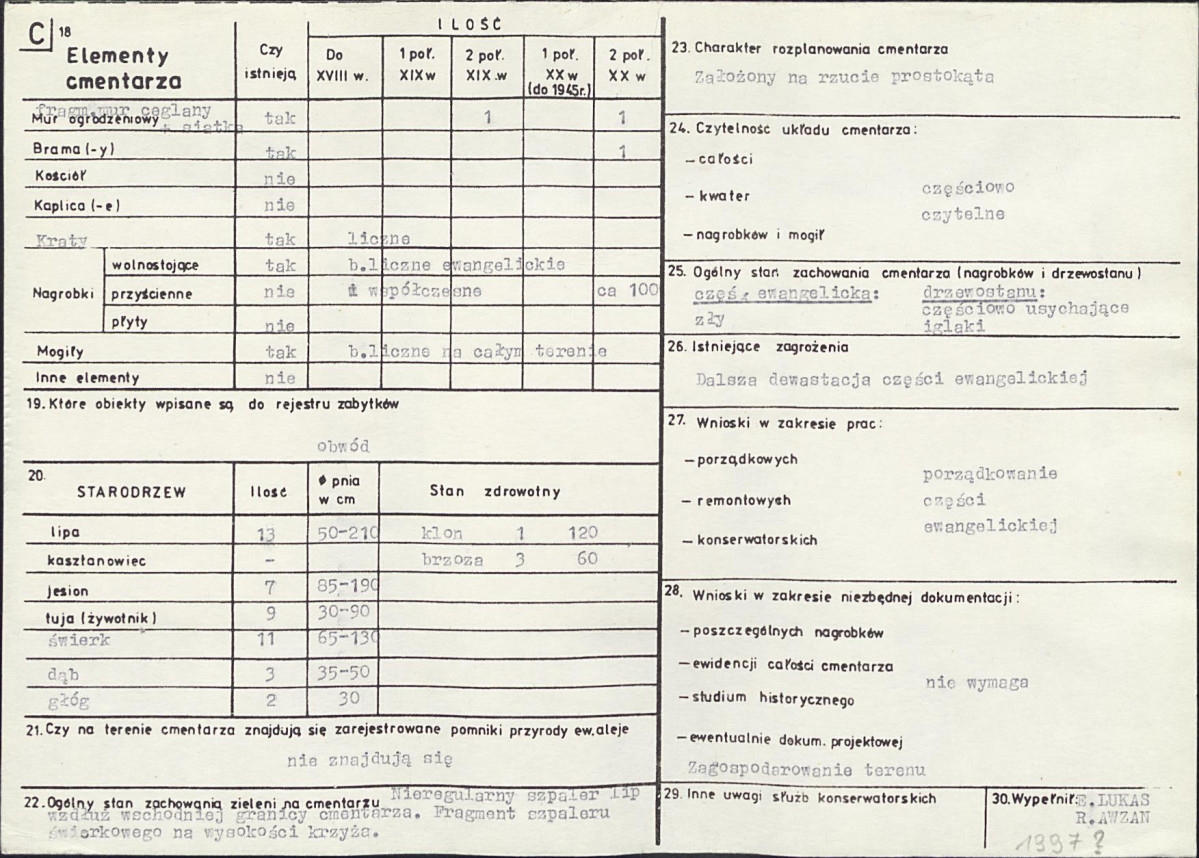 C 18
Elementy cmentarza
Czy istnieją
I L O Ś Ć
Do XVIII w.
1 poł. XIX w
2 poł. XIX w
1 poł. XX w (do 1945r.)
2 poł. XX w
fragm.mur ceglany
Mur ogrodzeniowy tak 1 1
+ siatka
Brama (-y) tak 1
Kościół nie
Kaplica (-e) nie
Kraty tak liczne
Nagrobki
wolnostojące tak b.liczne ewangelickie
przyścienne nie i współczesne ca 100
płyty nie
Mogiły tak b.liczne na całym terenie
Inne elementy nie
19. Które obiekty wpisane są do rejestru zabytków
obwód
20. STARODRZEW Ilość ø pnia w cm Stan zdrowotny
lipa 13 50-210 klon 1 120
kasztanowiec - brzoza 3 60
jesion 7 85-190
tuja (żywotnik) 9 30-90
świerk 11 65-130
dąb 3 35-50
głóg 2 30
21. Czy na terenie cmentarza znajdują się zarejestrowane pomniki przyrody ew. aleje
nie znajdują się
22. Ogólny stan zachowania zieleni na cmentarzu Nieregularny szpaler lip
wzdłuż wschodniej granicy cmentarza. Fragment szpaleru
świerkowego na wysokości krzyża.
23. Charakter rozplanowania cmentarza
Założony na rzucie prostokąta
24. Czytelność układu cmentarza:
– całości
– kwater
– nagrobków i mogił
częściowo
czytelne
25. Ogólny stan zachowania cmentarza (nagrobków i drzewostanu)
częś. ewangelicka: drzewostanu:
zły częściowo usychające
iglaki
26. Istniejące zagrożenia
Dalsza dewastacja części ewangelickiej
27. Wnioski w zakresie prac:
– porządkowych
– remontowych
– konserwatorskich
porządkowanie
części
ewangelickiej
28. Wnioski w zakresie niezbędnej dokumentacji:
– poszczególnych nagrobków
– ewidencji całości cmentarza
– studium historycznego
nie wymaga
– ewentualnie dokum. projektowej
Zagospodarowanie terenu
29. Inne uwagi służb konserwatorskich
30. Wypełnił: E.LUKAS
R.AWZAN
1997 ?